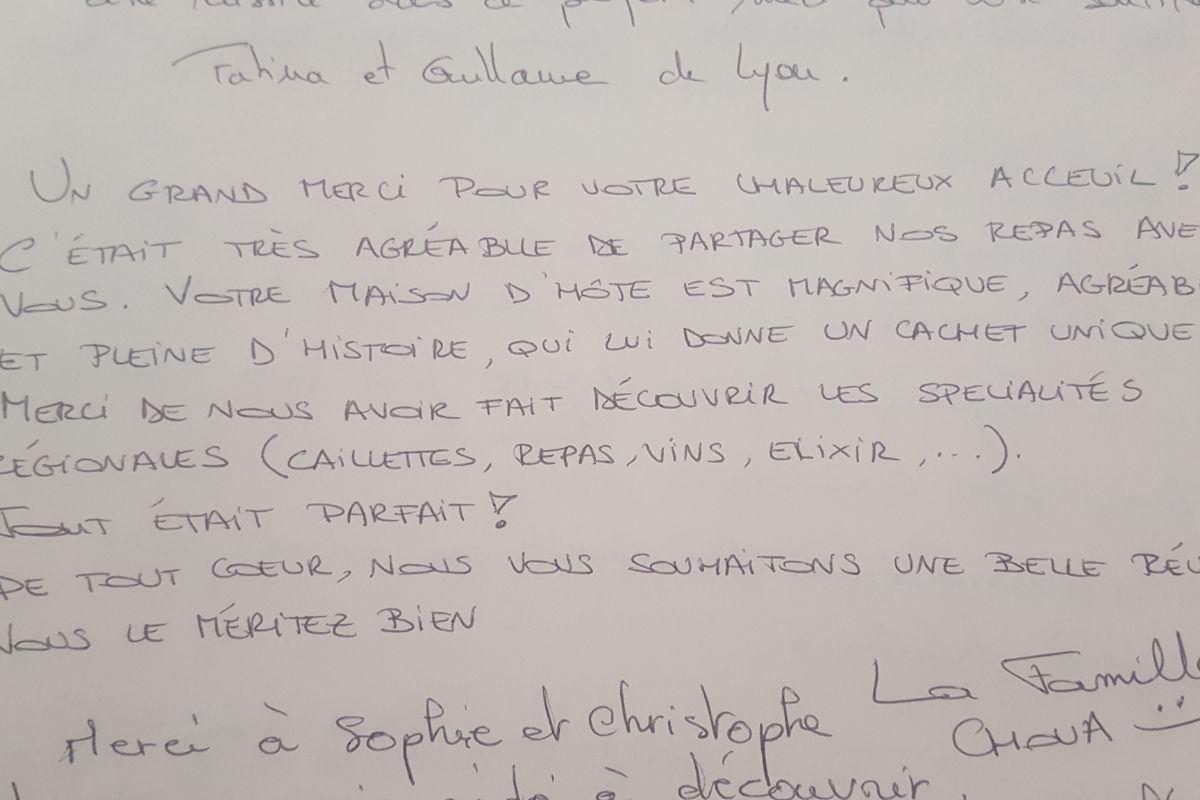 Fatima et Guillaume de Lyon.
UN GRAND MERCI POUR VOTRE CHALEUREUX ACCEUIL !
C'ÉTAIT TRÈS AGRÉABLE DE PARTAGER NOS REPAS AVE
VOUS. VOTRE MAISON D'HÔTE EST MAGNIFIQUE, AGRÉAB
ET PLEINE D'HISTOIRE, QUI LUI DONNE UN CACHET UNIQUE
MERCI DE NOUS AVOIR FAIT DÉCOUVRIR LES SPECIALITÉS
RÉGIONALES (CAILLETTES, REPAS, VINS, ELIXIR, ...).
TOUT ÉTAIT PARFAIT !
DE TOUT COEUR, NOUS VOUS SOUHAITONS UNE BELLE RÉU
VOUS LE MÉRITEZ BIEN
La Famille
CHOUA :)
Merci à Sophie et Christophe
à découvrir.